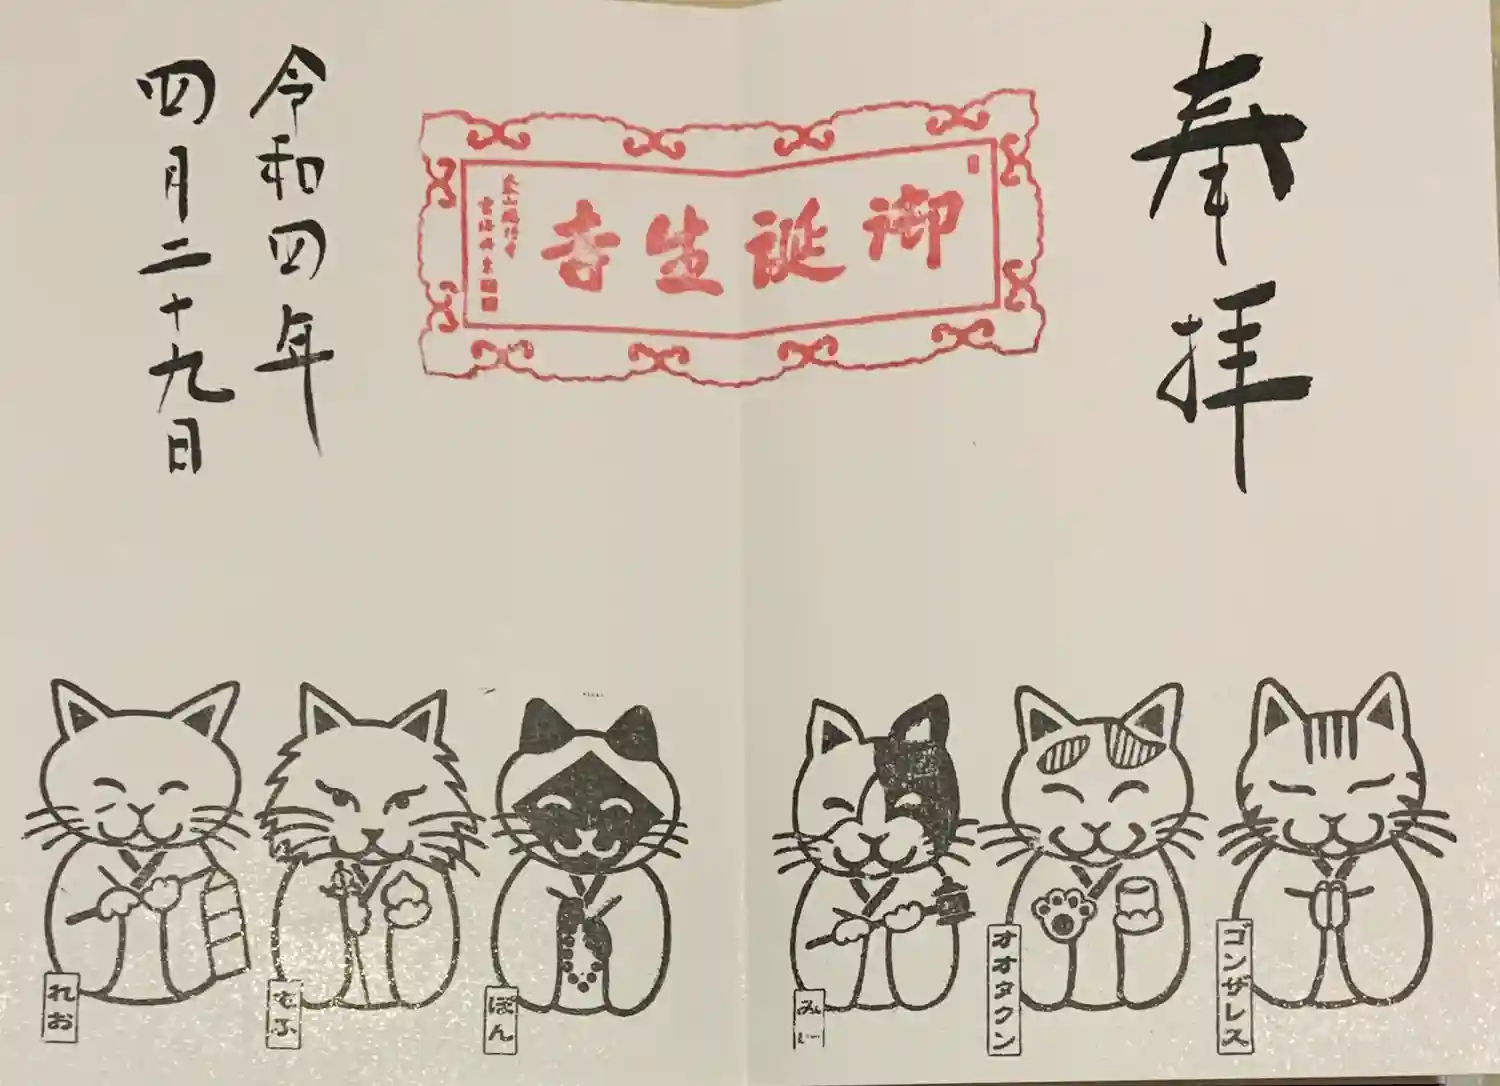 奉拝
御誕生吉
令和四年
四月二十九日
ゴンザレス
オオタクン
みい
ぽん
むふ
れお